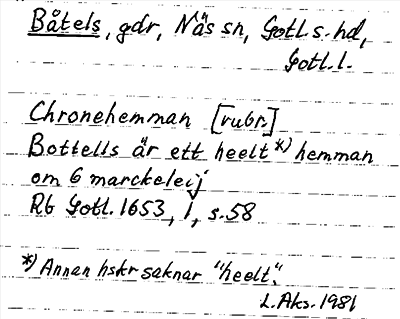 Båtels, gdr, Näs sn, Gotl. s. hd,
Gotl. l.
Chronehemman [rubr.]
Bottells är ett heelt*) hemman
om 6 marckeleij
Rb Gotl. 1653, 1, s. 58
*) Annan hskr saknar "heelt".
L. Aks. 1981